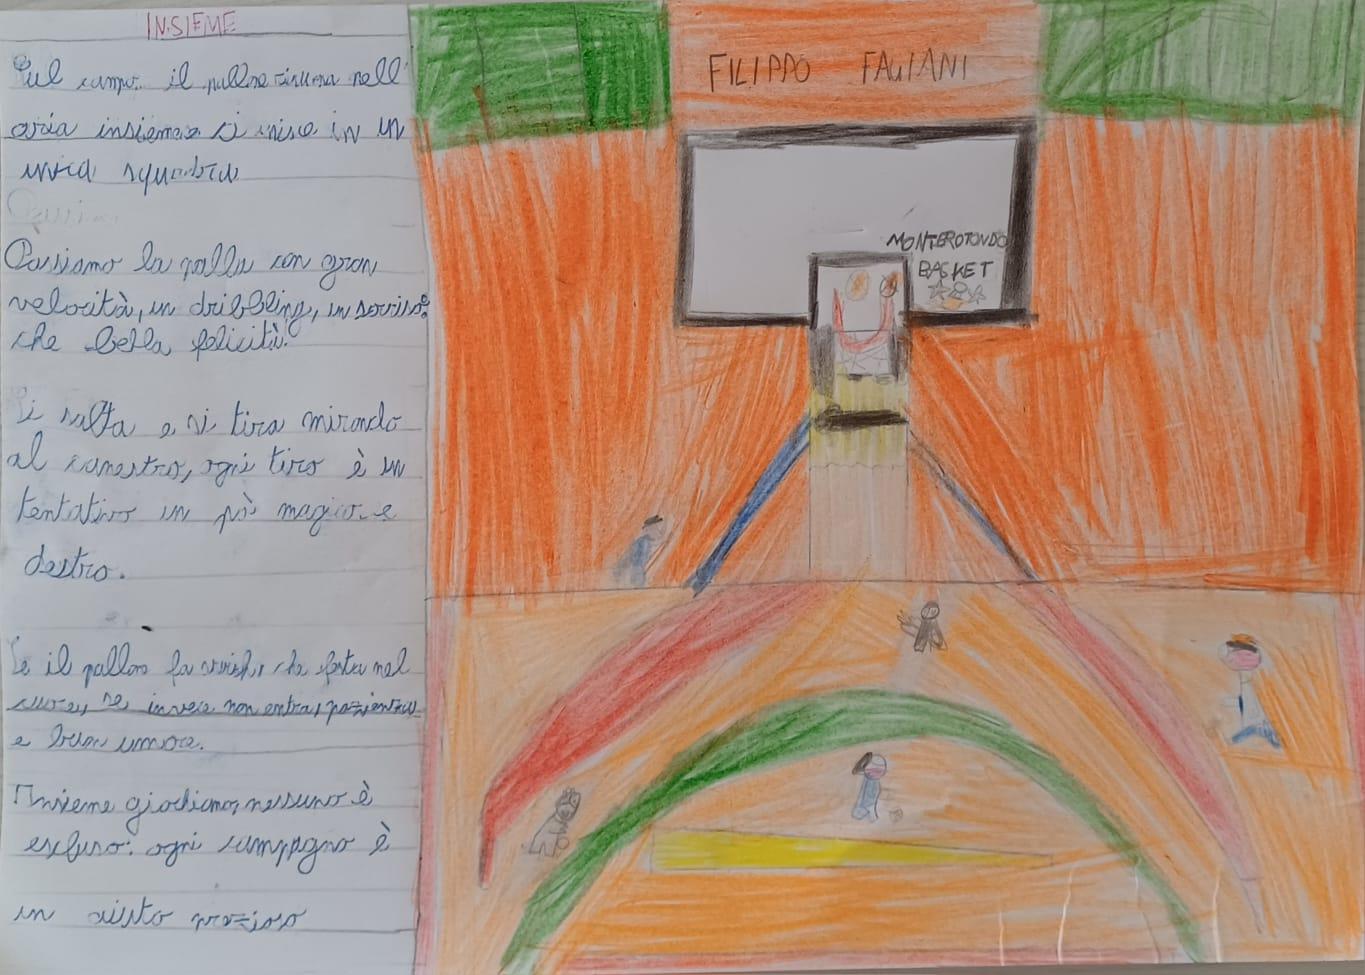 INSIEME
Sul campo il pallone risuona nell'
aria insieme si unisce in un
unica squadra
Passiamo la palla con gran
velocità, un dribbling, un sorriso:
che bella felicità!
Si salta e si tira mirando
al canestro, ogni tiro è un
tentativo un pò magico e
destro.
Se il pallone fa swish, che festa nel
cuore, se invece non entra, pazienza
e buon umore.
Insieme giochiamo, nessuno è
escluso: ogni compagno è
un aiuto prezioso
FILIPPO FAGIANI
MONTEROTONDO
BASKET